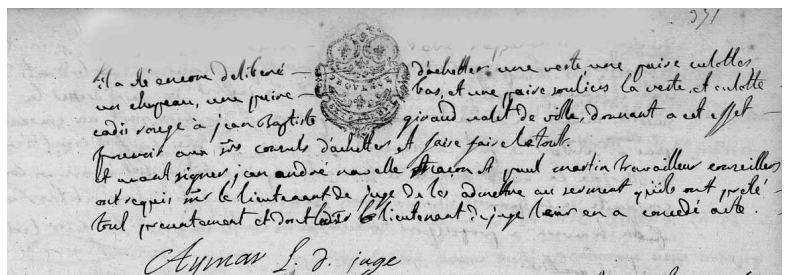 331
il a été encore deliberé d'achetter une veste une paire culottes
un chapeau, une paire bas, et une paire souliers la veste, et culotte
cadis rouge à jean Baptiste giraud valet de ville, donnant a cet effet
pouvoir aux srs consuls d'achetter et faire faire le tout.
et avant signer, jean andré maçon et paul martin travailleur conseillers
ont requis sr le lieutenant de juge de les admettre au serment qu'ils ont prêté
tout presentement et dont le lieutenant de juge leur en a concedé acte.
Aymar L. d. juge
PROVENCE